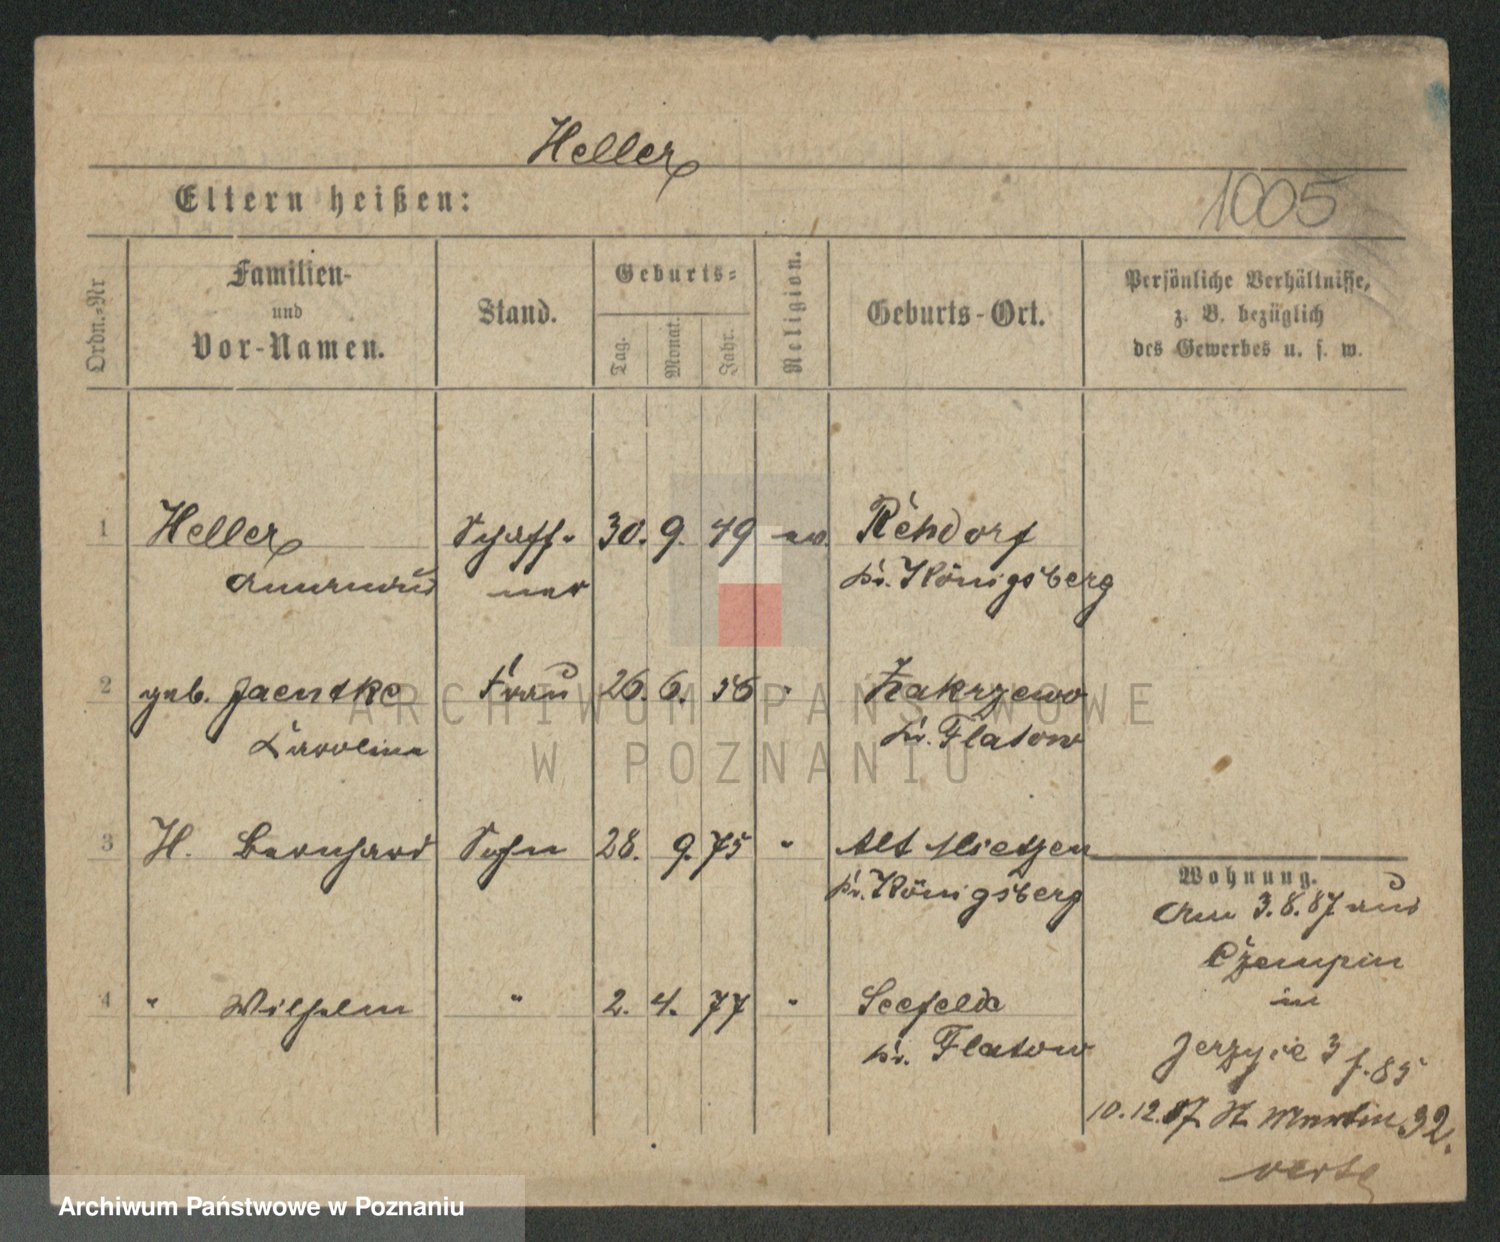 Heller
Eltern heißen:
1005
Ordn.-Nr
Familien-
und
Vor-Namen.
Stand.
Geburts-
Tag.
Monat.
Jahr.
Religion.
Geburts-Ort.
Persönliche Verhältnisse,
z. B. bezüglich
des Gewerbes u. s. w.
1 Heller Schaff- 30. 9. 49 ev. Rehdorf
ner Kr. Königsberg
2 geb. Jaentke Frau 26. 6. 56 " Zakrzewo
Karoline Kr. Flatow
3 H. Bernhard Sohn 28. 9. 75 " Alt Mietzen
Kr. Königsberg
4 " Wilhelm " 2. 4. 77 " Seefelde
Kr. Flatow
Wohnung.
Am 3.8.87 aus
Czempin
in
Jerzyce 3 f. 85
10.12.87 St. Martin 32.
verte
ARCHIWUM PAŃSTWOWE
W POZNANIU
Archiwum Państwowe w Poznaniu